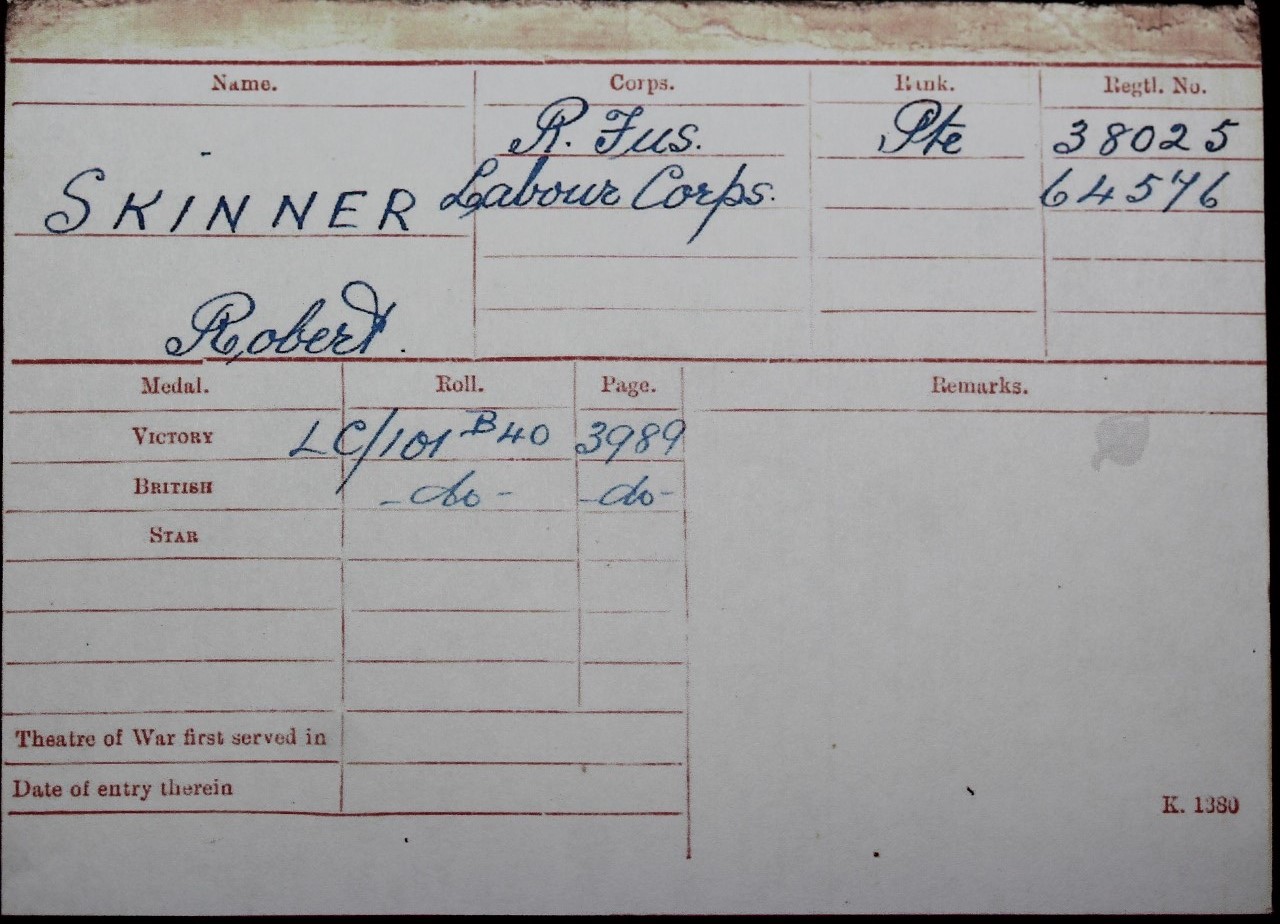 Name. Corps. Rank. Regtl. No.
R. Fus. Pte 38025
SKINNER Labour Corps. 64576
Robert.
Medal. Roll. Page. Remarks.
VICTORY LC/101 B40 3989
BRITISH -do- -do-
STAR
Theatre of War first served in
Date of entry therein
K. 1380